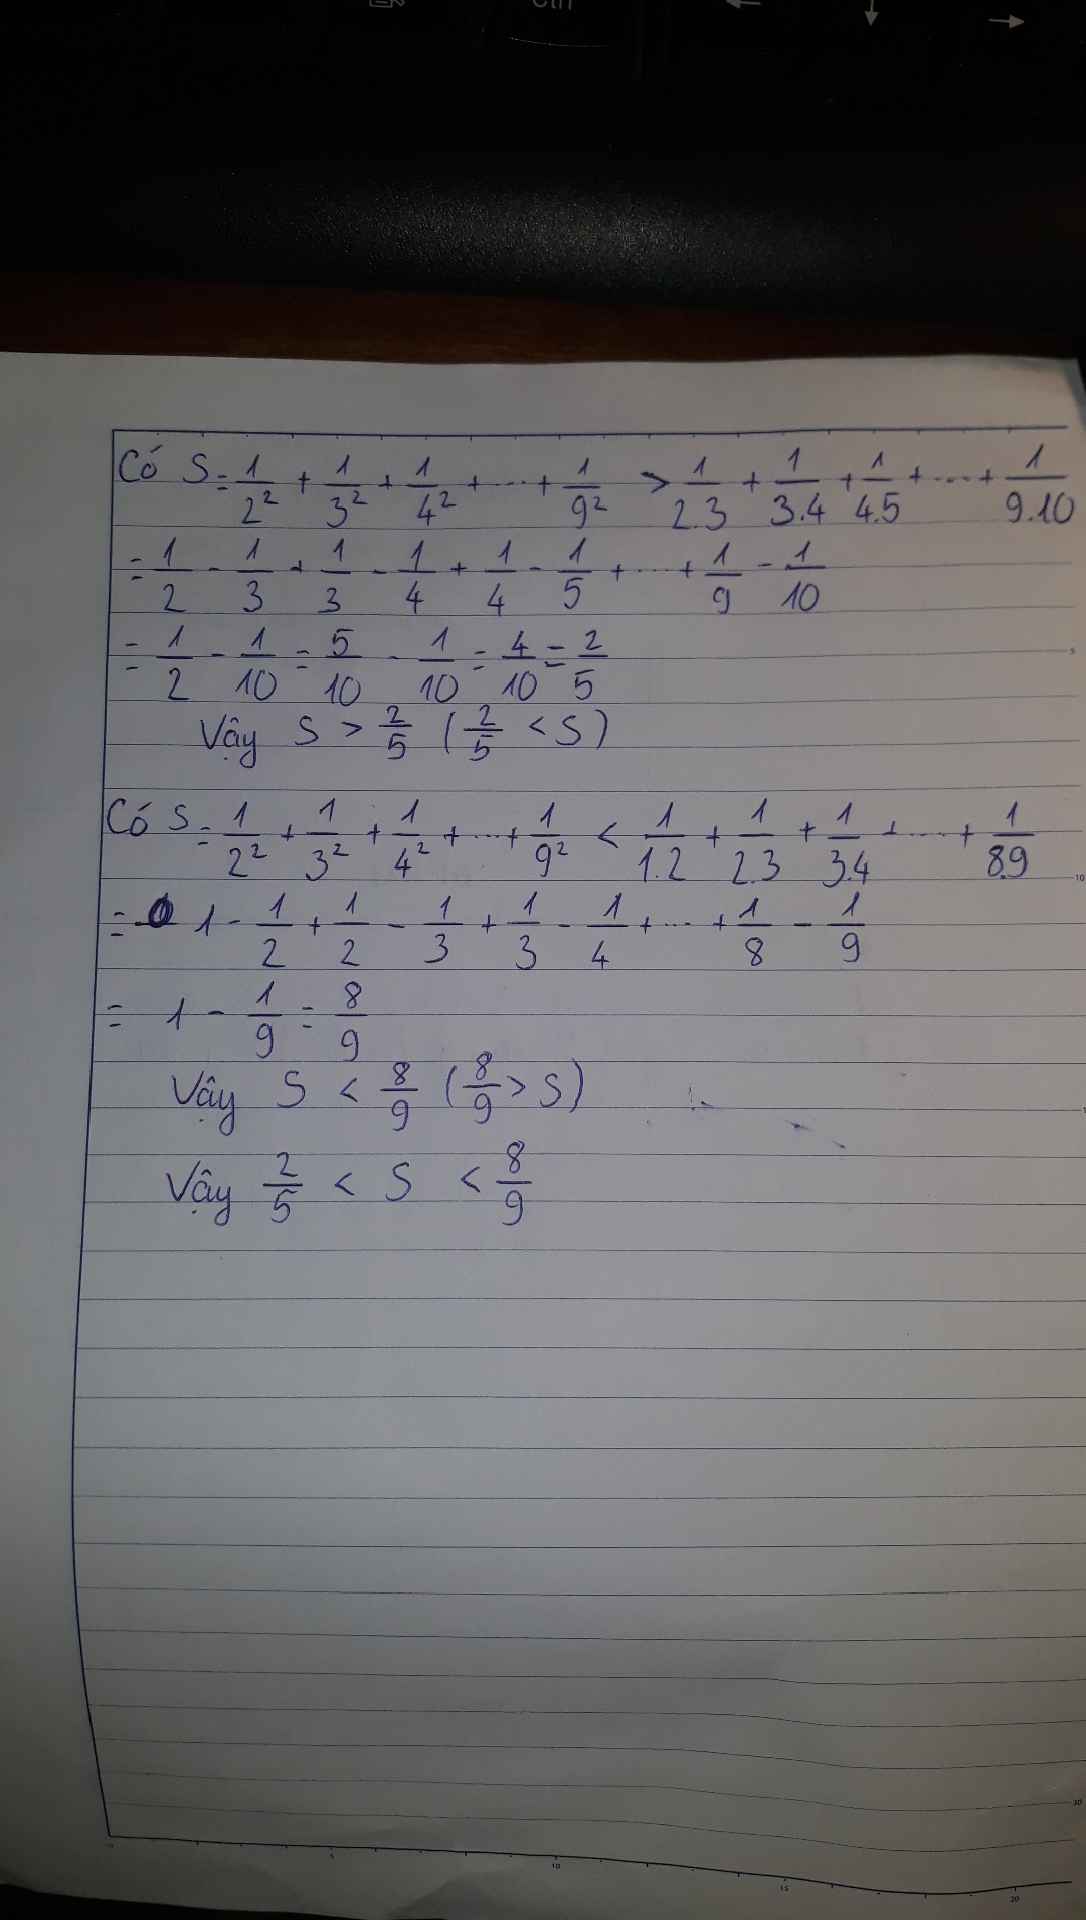 Ctrl
Có S = 1/2² + 1/3² + 1/4² + ... + 1/9² > 1/2.3 + 1/3.4 + 1/4.5 + ... + 1/9.10
= 1/2 - 1/3 + 1/3 - 1/4 + 1/4 - 1/5 + ... + 1/9 - 1/10
= 1/2 - 1/10 = 5/10 - 1/10 = 4/10 = 2/5
Vậy S > 2/5 (2/5 < S)
Có S = 1/2² + 1/3² + 1/4² + ... + 1/9² < 1/1.2 + 1/2.3 + 1/3.4 + ... + 1/8.9
= 1 - 1/2 + 1/2 - 1/3 + 1/3 - 1/4 + ... + 1/8 - 1/9
= 1 - 1/9 = 8/9
Vậy S < 8/9 (8/9 > S)
Vậy 2/5 < S < 8/9
5
10
30
5
10
15
20